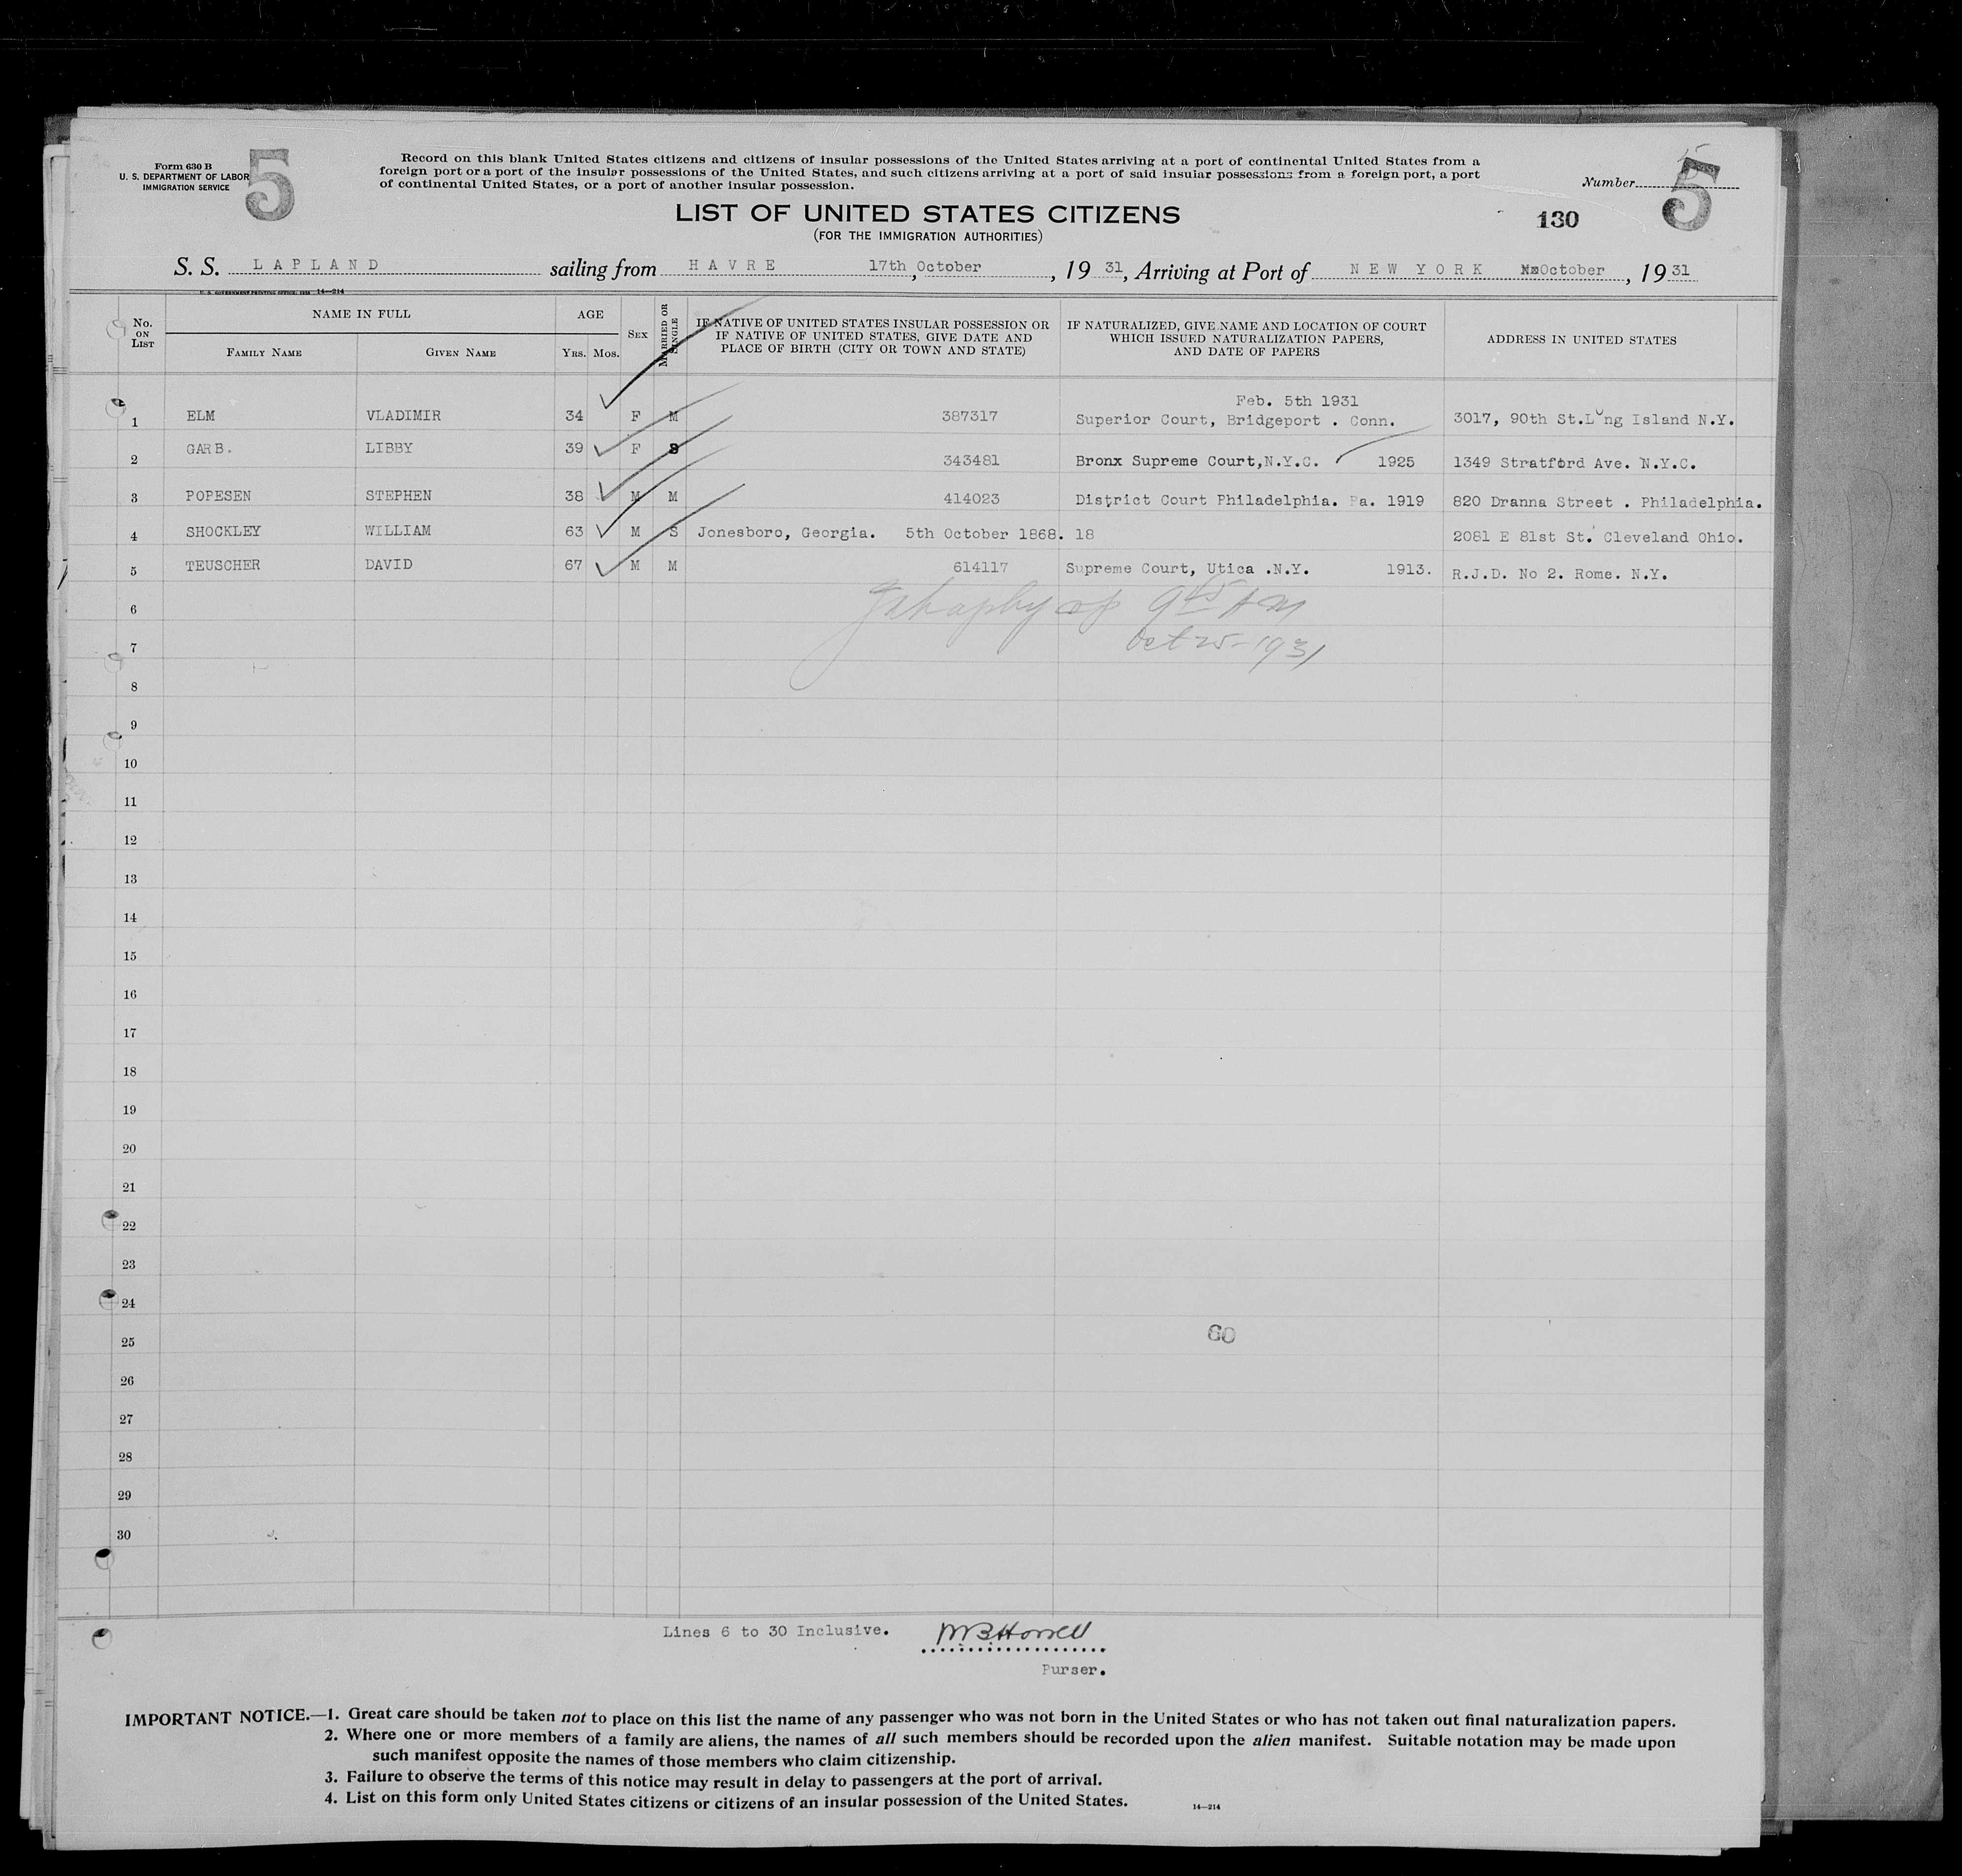 Form 630 B
U. S. DEPARTMENT OF LABOR
IMMIGRATION SERVICE
5
Record on this blank United States citizens and citizens of insular possessions of the United States arriving at a port of continental United States from a
foreign port or a port of the insular possessions of the United States, and such citizens arriving at a port of said insular possessions from a foreign port, a port
of continental United States, or a port of another insular possession.
Number 5
LIST OF UNITED STATES CITIZENS
130
(FOR THE IMMIGRATION AUTHORITIES)
S. S. LAPLAND sailing from HAVRE 17th, October, 19 31, Arriving at Port of NEW YORK October, 19 31
14—214
No. ON LIST
NAME IN FULL
FAMILY NAME
GIVEN NAME
AGE
YRS. MOS.
SEX
MARRIED OR SINGLE
IF NATIVE OF UNITED STATES INSULAR POSSESSION OR
IF NATIVE OF UNITED STATES, GIVE DATE AND
PLACE OF BIRTH (CITY OR TOWN AND STATE)
IF NATURALIZED, GIVE NAME AND LOCATION OF COURT
WHICH ISSUED NATURALIZATION PAPERS,
AND DATE OF PAPERS
ADDRESS IN UNITED STATES
Feb. 5th 1931
1 ELM VLADIMIR 34 F M 387317 Superior Court, Bridgeport . Conn. 3017, 90th St.Lung Island N.Y.
2 GARB. LIBBY 39 F S 343481 Bronx Supreme Court,N.Y.C. 1925 1349 Stratford Ave. N.Y.C.
3 POPESEN STEPHEN 38 M M 414023 District Court Philadelphia. Pa. 1919 820 Dranna Street . Philadelphia.
4 SHOCKLEY WILLIAM 63 M S Jonesboro, Georgia. 5th October 1868. 18 2081 E 81st St. Cleveland Ohio.
5 TEUSCHER DAVID 67 M M 614117 Supreme Court, Utica .N.Y. 1913. R.J.D. No 2. Rome. N.Y.
6
Oct 25-1931
7
8
9
10
11
12
13
14
15
16
17
18
19
20
21
22
23
24
60
25
26
27
28
29
30
Lines 6 to 30 Inclusive.
Purser.
IMPORTANT NOTICE.—1. Great care should be taken not to place on this list the name of any passenger who was not born in the United States or who has not taken out final naturalization papers.
2. Where one or more members of a family are aliens, the names of all such members should be recorded upon the alien manifest. Suitable notation may be made upon
such manifest opposite the names of those members who claim citizenship.
3. Failure to observe the terms of this notice may result in delay to passengers at the port of arrival.
4. List on this form only United States citizens or citizens of an insular possession of the United States.
14—214